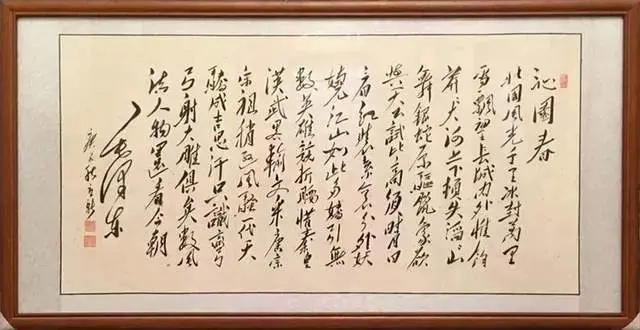 沁園春
北國風光千里冰封萬里
雪飄望長城內外惟餘
莽莽大河上下頓失滔滔山
舞銀蛇原驅蠟象欲
與天公試比高須晴日
看紅裝素裹分外妖
嬈江山如此多嬌引無
數英雄競折腰惜秦皇
漢武畧輸文采唐宗
宋祖稍遜風騷一代天
驕成吉思汗只識彎
弓射大雕俱往矣數風
流人物還看今朝
毛澤東